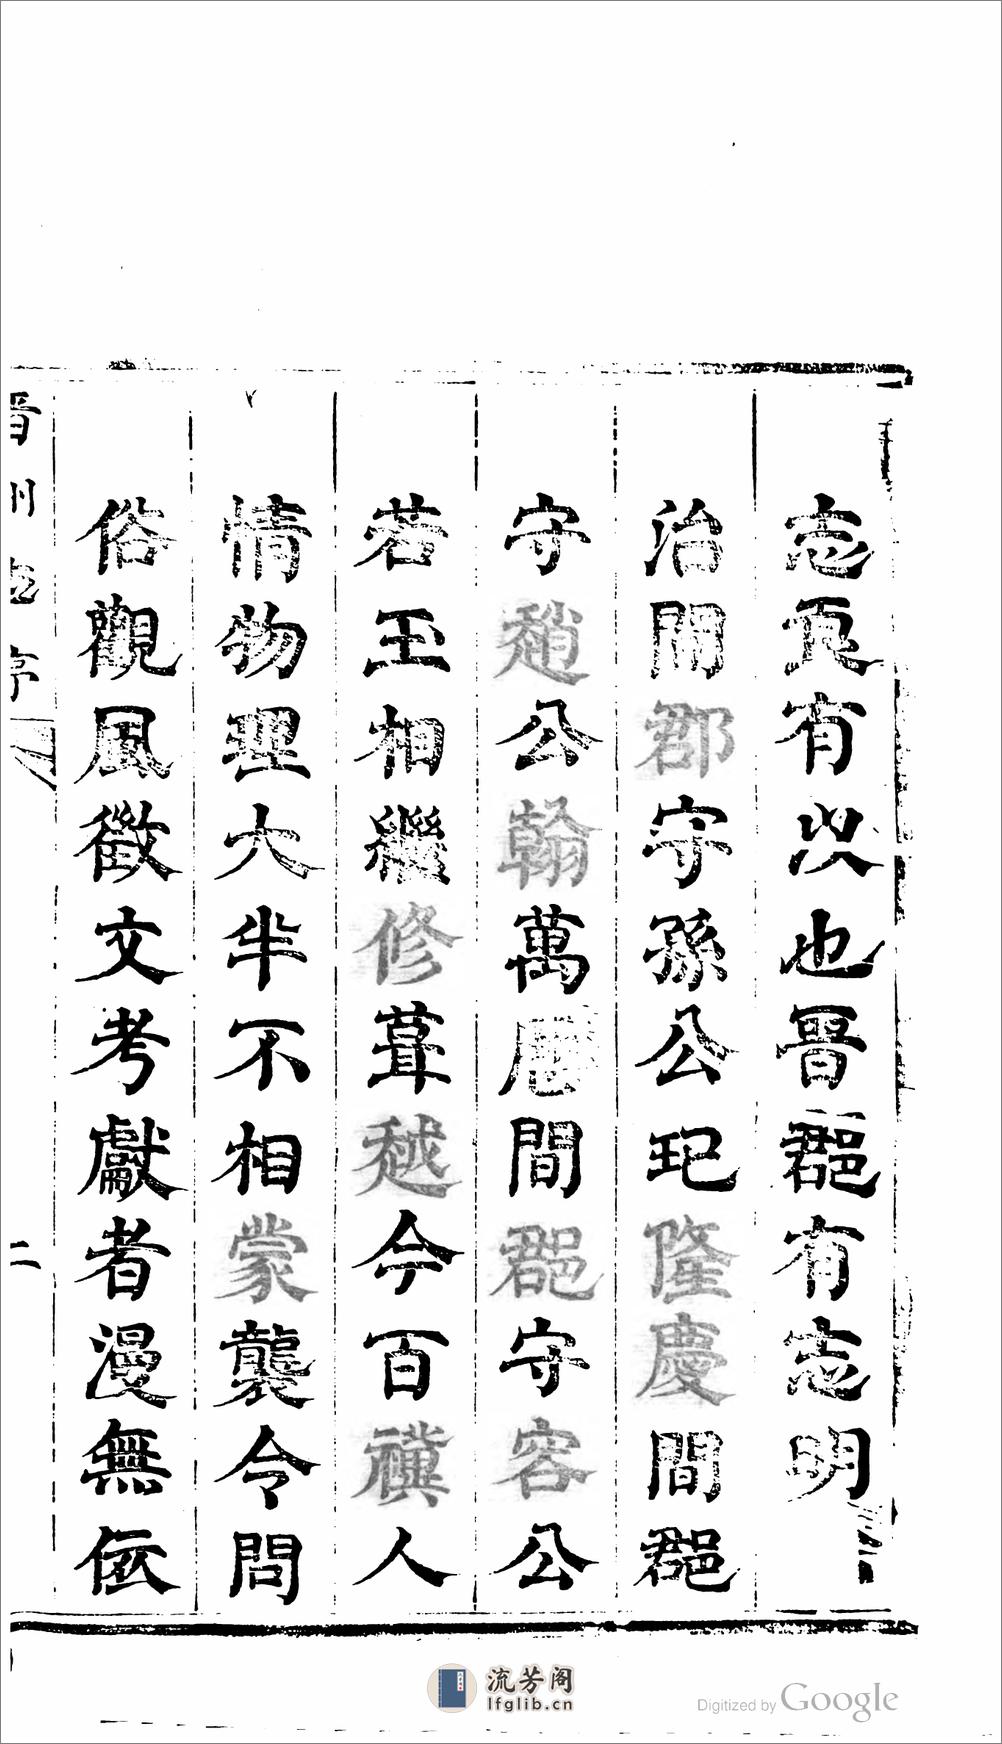 志良有以也晉郡有志明
治間郡守孫公玘隆慶間郡
守趙公翰萬曆間郡守容公
若玉相繼修葺越今百禩人
情物理大半不相蒙襲令問
俗觀風徵文考獻者漫無依
晉州志序
二
流芳阁
lfglib.cn
Digitized by Google